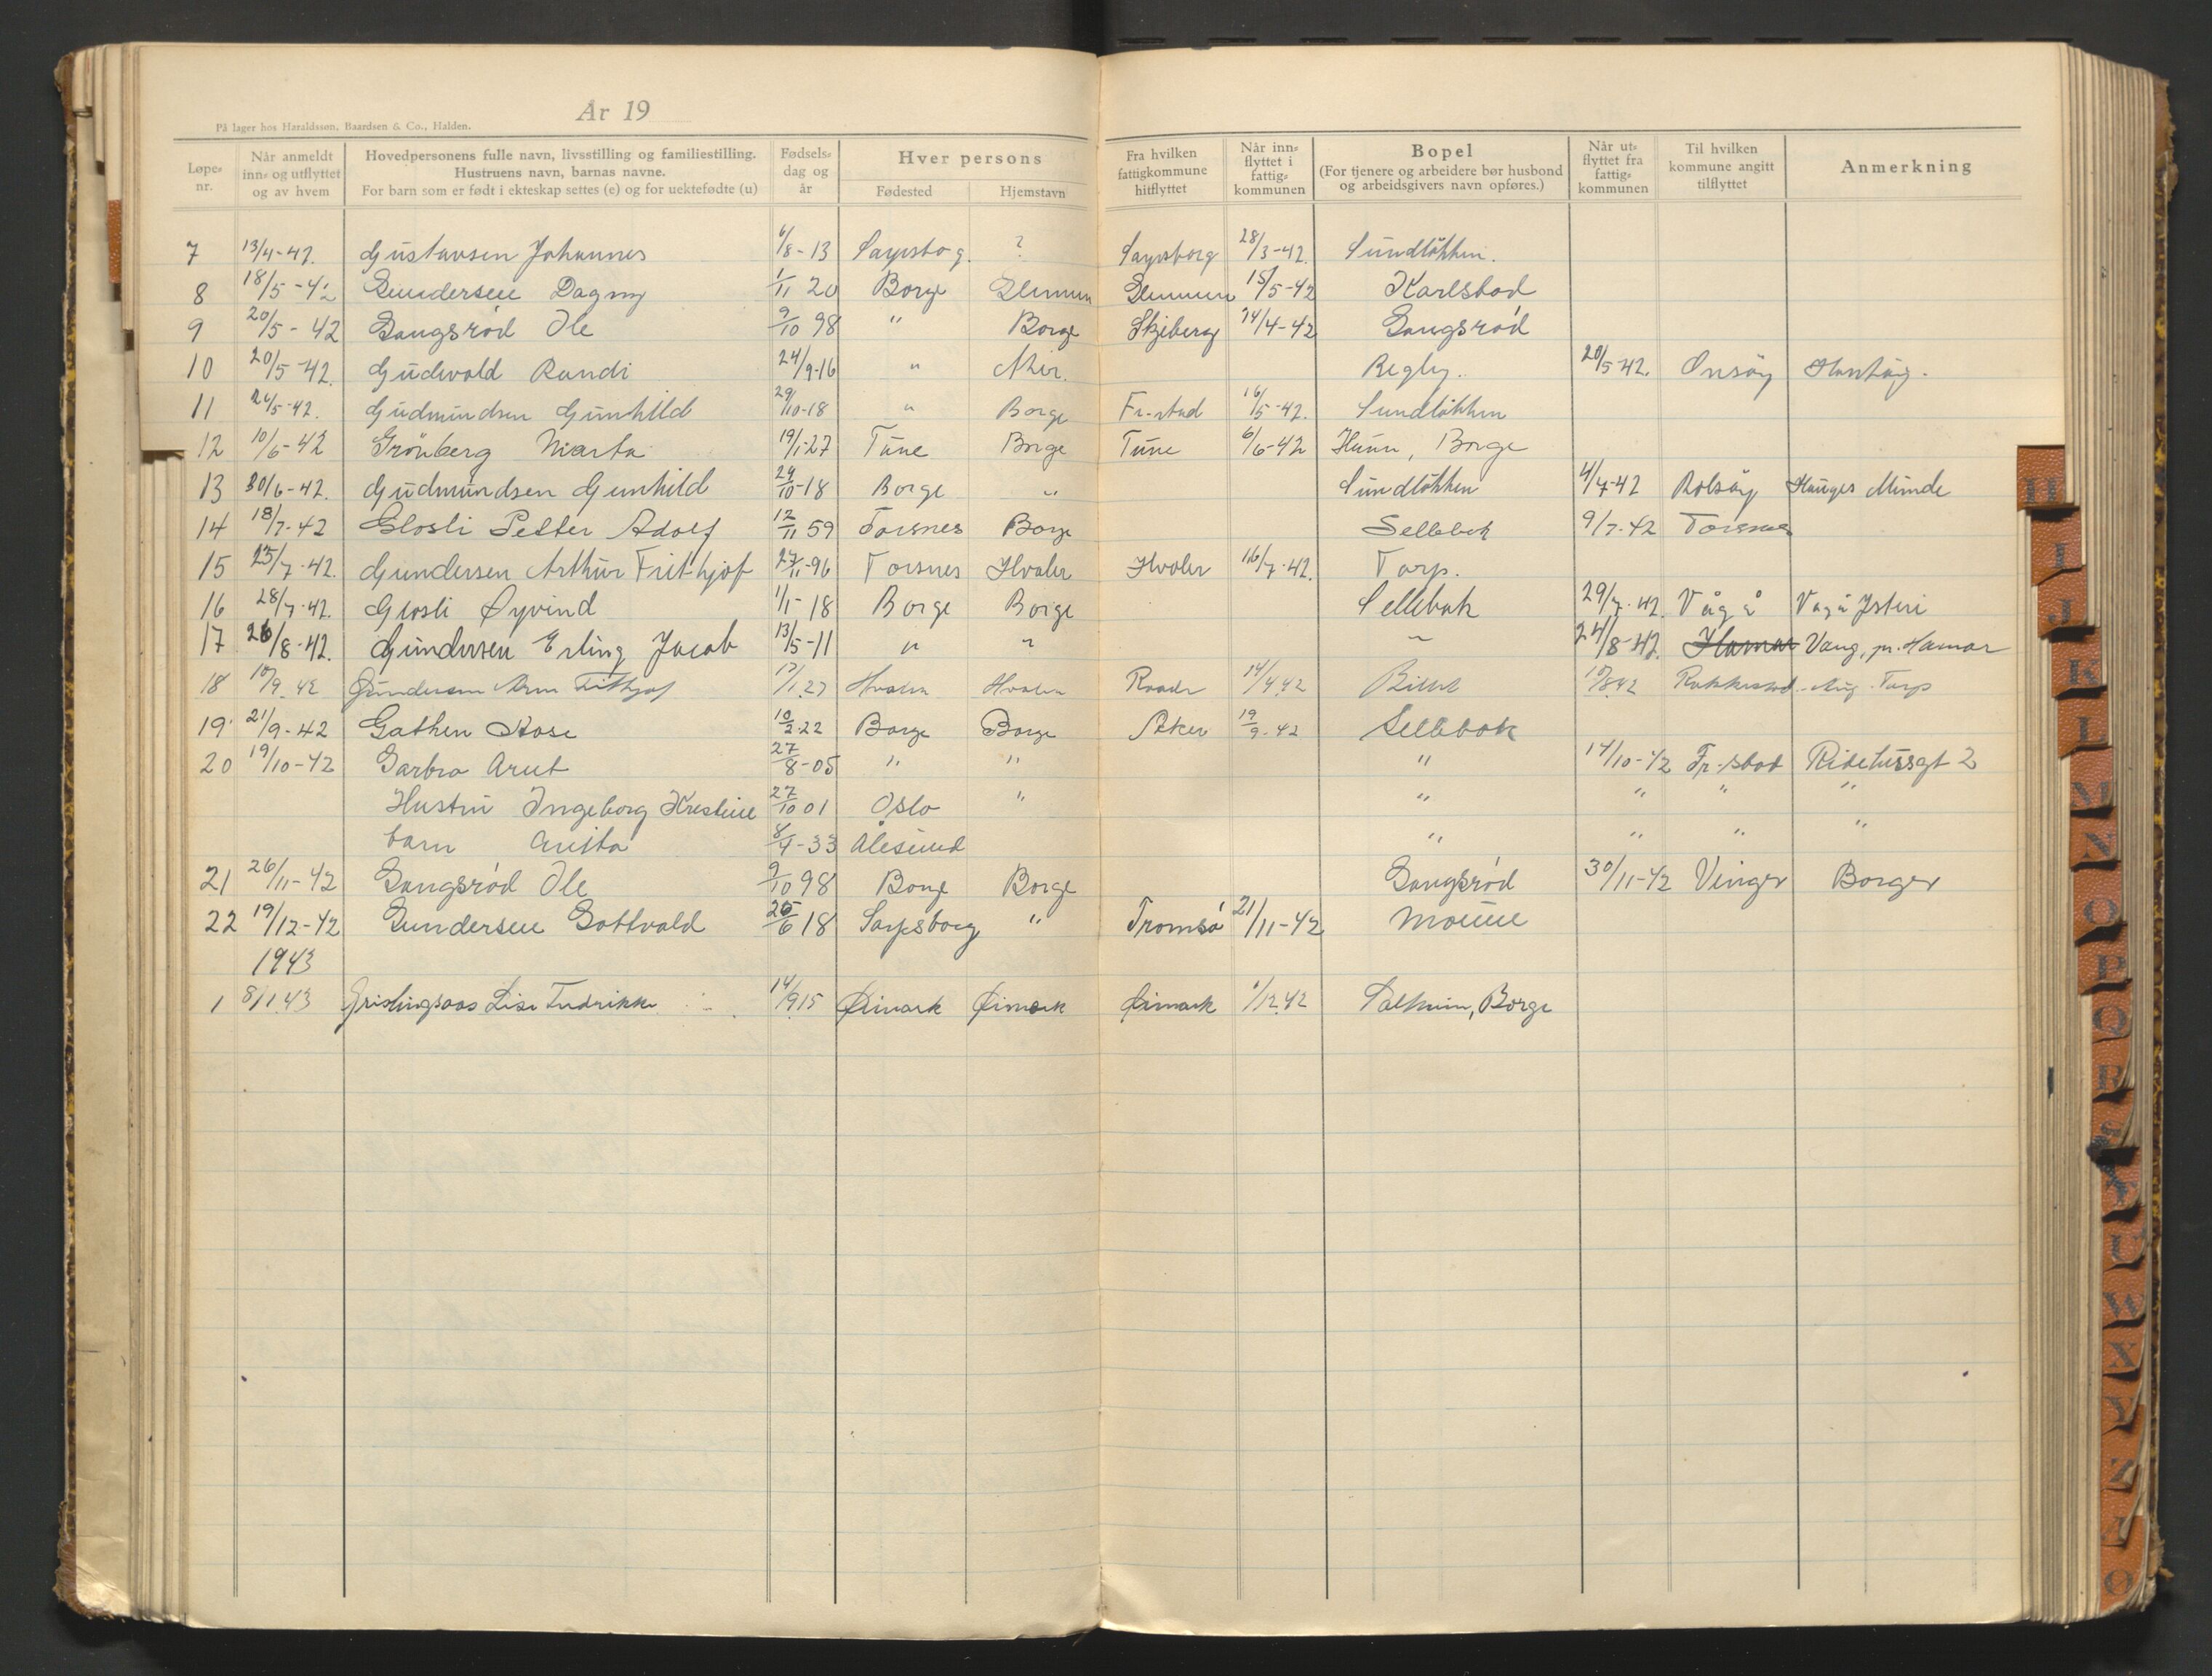 År 19
På lager hos Haraldssøn, Baardsen & Co., Halden.
Løpe-nr. Når anmeldt inn- og utflyttet og av hvem Hovedpersonens fulle navn, livsstilling og familiestilling. Hustruens navn, barnas navne. For barn som er født i ekteskap settes (e) og for uektefødte (u) Fødsels-dag og år Hver persons Fødested Hjemstavn Fra hvilken fattigkommune hitflyttet Når inn-flyttet i fattig-kommunen Bopel (For tjenere og arbeidere bør husbond og arbeidsgivers navn opføres.) Når ut-flyttet fra fattig-kommunen Til hvilken kommune angitt tilflyttet Anmerkning
7 13/4-42. Gustavsen Johannes 6/8-13 Sarpsborg. ? Sarpsborg 28/3-42. Sundløkken.
8 18/5-42 Gundersen Dagny 1/11 20 Borge Glemmen Glemmen 15/5-42 Karlsbad
9 20/5-42 Gangsrød Ole 9/10 98 " Borge Skjeberg 14/4-42 Gangsrød
10 20/5-42. Gudevold Randi 24/9-16 " Begby. 20/5-42. Onsøy
11 5-42. Gudmundsen Gunhild 29/10-18 " Borge Fr-stad 16/5-42. Sundløkken
12 10/6-42 Grönberg Marta 19/1-27 Tune Borge Tune 6/6-42 Hunn, Borge
13 30/6-42. Gudmundsen Gunhild 29/10-18 Borge " Sundløkken 4/7-42 Rolsøy Hauges Minde
14 18/7-42 Glosli Petter Adolf 12/11 59 Torsnes Borge Sellebak 9/7-42 Torsnes
15 25/7-42. Gundersen Arthur Frithjof 27/11-96 Torsnes Hvaler Hvaler 16/7-42. Torp.
16 28/7-42. Glosli Øyvind 1/1-18 Borge Borge Sellebak 29/7-42. Vågå Vågå Ysteri
17 26/8-42. Gundersen Erling Jacob 13/5-11 " " " 24/8-42. Hamar Vang, pr. Hamar
18 /9-42 Gundersen Frithjof /1 27 Hvaler Hvaler Raade 14/4 42 8 42 Rakkestad Aug. Torp
19 21/9-42 Gathen Rose 10/2-22 Borge Borge Aker 19/9-42 Sellebak
20 19/10-42 Garbro Arut 27/8-05 " " " 14/10-42 Fr-stad
Hustru Ingeborg Kristine 27/10 01 Oslo " " " " "
barn Anita 8/4-33 Ålesund " " " "
21 26/11-42 Gangsrød Ole 9/10 98 Borge Borge Gangsrød 30/11-42 Vinger Borger
22 19/12-42 Gundersen Gottvald 25/6 18 Sarpsborg " Tromsø 21/11-42 Moene
1943
1 8/1 43 Lise Fredrikke 14/9 15 Øimark Øimark Øimark 1/12 42 Solheim, Borge